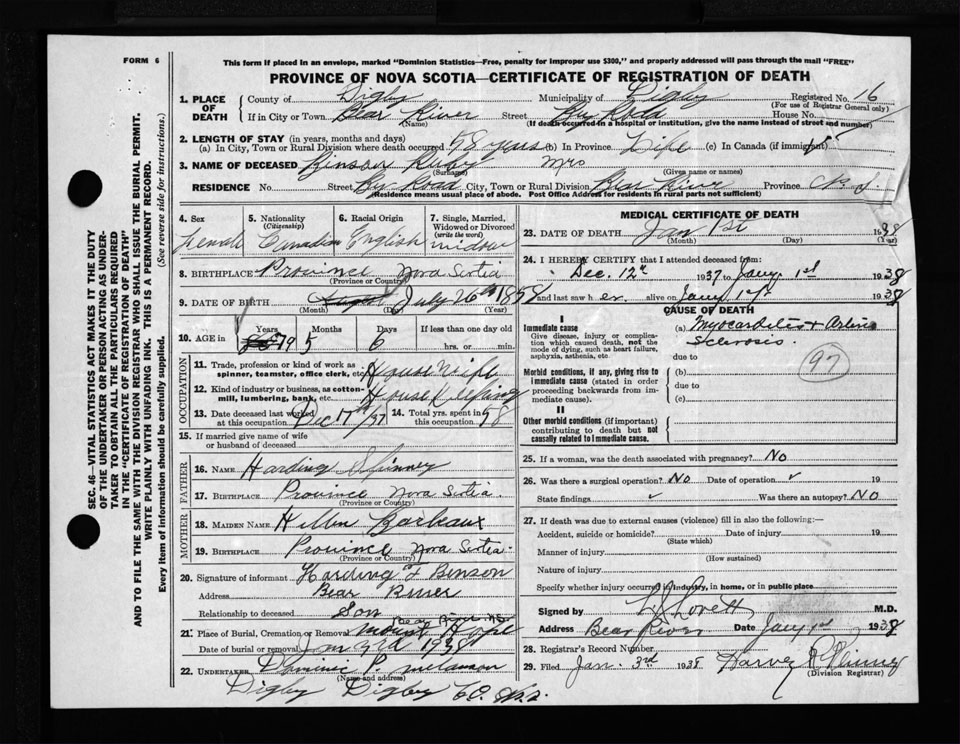 FORM 6
This form if placed in an envelope, marked "Dominion Statistics—Free, penalty for improper use $300," and properly addressed will pass through the mail "FREE"
PROVINCE OF NOVA SCOTIA—CERTIFICATE OF REGISTRATION OF DEATH
1. PLACE OF DEATH County of Digby Municipality of Digby Registered No. 16
(For use of Registrar General only)
If in City or Town Bear River Street House No.
(Name) (If death occurred in a hospital or institution, give the name instead of street and number)
2. LENGTH OF STAY (in years, months and days)
(a) In City, Town or Rural Division where death occurred 58 years (b) In Province Life (c) In Canada (if immigrant)
3. NAME OF DECEASED Mrs
(Surname) (Given name or names)
RESIDENCE No. Street City, Town or Rural Division Bear River Province N. S.
(Residence means usual place of abode. Post Office Address for residents in rural parts not sufficient)
4. Sex Female
5. Nationality (Citizenship) Canadian
6. Racial Origin English
7. Single, Married, Widowed or Divorced (write the word) widow
8. BIRTHPLACE Province Nova Scotia
(Province or Country)
9. DATE OF BIRTH July 26th 1858
(Month) (Day) (Year)
10. AGE in Years 79 Months 5 Days 6 If less than one day old hrs. or min.
OCCUPATION
11. Trade, profession or kind of work as spinner, teamster, office clerk, etc. House Wife
12. Kind of industry or business, as cotton-mill, lumbering, bank, etc. House
13. Date deceased last worked at this occupation Dec 17th/37
14. Total yrs. spent in this occupation 58
15. If married give name of wife or husband of deceased
FATHER
16. NAME Harding Spinney
17. BIRTHPLACE Province Nova Scotia
(Province or Country)
MOTHER
18. MAIDEN NAME
19. BIRTHPLACE Province Nova Scotia
(Province or Country)
20. Signature of informant Harding F Benson
Address Bear River
Relationship to deceased Son
21. Place of Burial, Cremation or Removal Mount Hope Bear River NS
Date of burial or removal Jan 3rd 1938
22. UNDERTAKER Dominic P. Melanson
(Name and address)
Digby Digby Co. N.S.
MEDICAL CERTIFICATE OF DEATH
23. DATE OF DEATH Jan 1st 1938
(Month) (Day) (Year)
24. I HEREBY CERTIFY that I attended deceased from:
Dec. 12th 1937 to Jany. 1st 1938
and last saw h er alive on Jany 1st 1938
CAUSE OF DEATH
I
Immediate cause (a) Myocarditis & Arterio
Give disease, injury or complication which caused death, not the mode of dying, such as heart failure, asphyxia, asthenia, etc. Sclerosis.
due to
97
Morbid conditions, if any, giving rise to immediate cause (stated in order proceeding backwards from immediate cause). (b)
due to
(c)
II
Other morbid conditions (if important) contributing to death but not causally related to immediate cause.
25. If a woman, was the death associated with pregnancy? No
26. Was there a surgical operation? No Date of operation
State findings Was there an autopsy? No
27. If death was due to external causes (violence) fill in also the following:—
Accident, suicide or homicide? Date of injury 19
(State which)
Manner of injury
(How sustained)
Nature of injury
Specify whether injury occurred in industry, in home, or in public place
Signed by L J Lovett M.D.
Address Bear River Date Jany 1st 1938
28. Registrar's Record Number
29. Filed Jan. 3rd 1938 Harvey
(Division Registrar)
SEC. 46—VITAL STATISTICS ACT MAKES IT THE DUTY
OF THE UNDERTAKER OR PERSON ACTING AS UNDER-
TAKER TO OBTAIN ALL THE PARTICULARS REQUIRED
IN THE "CERTIFICATE OF REGISTRATION OF DEATH"
AND TO FILE THE SAME WITH THE DIVISION REGISTRAR WHO SHALL ISSUE THE BURIAL PERMIT.
WRITE PLAINLY WITH UNFADING INK. THIS IS A PERMANENT RECORD.
Every item of information should be carefully supplied. (See reverse side for instructions.)